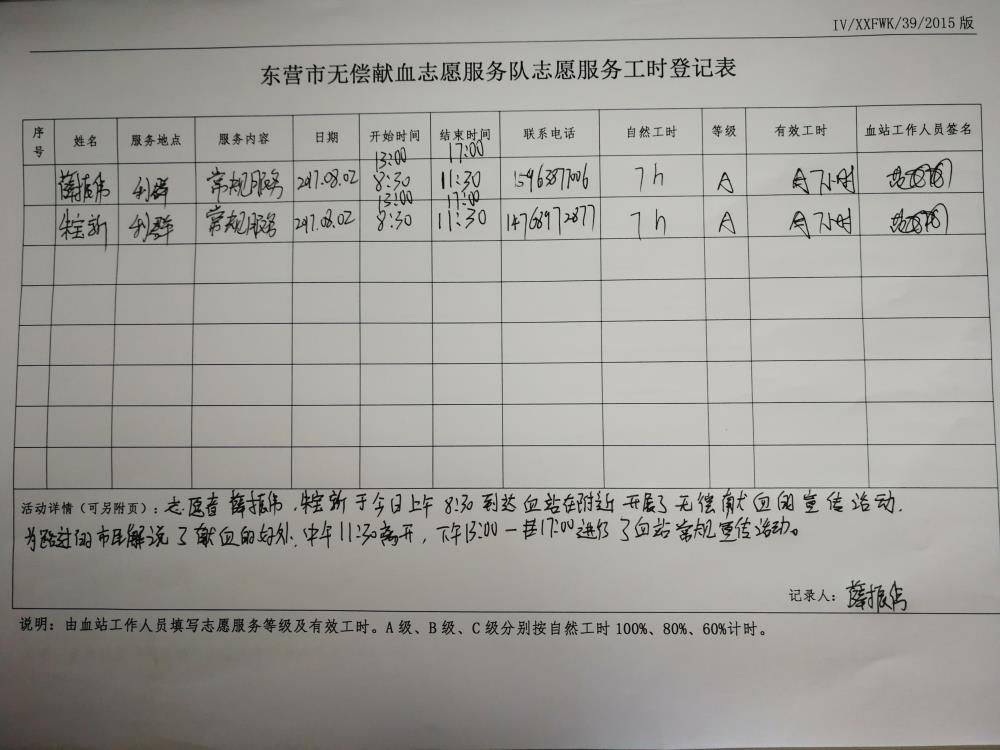 IV/XXFWK/39/2015 版
东营市无偿献血志愿服务队志愿服务工时登记表
序号 姓名 服务地点 服务内容 日期 开始时间 结束时间 联系电话 自然工时 等级 有效工时 血站工作人员签名
13:00 17:00
薛振伟 利群 常规服务 2017.08.02 8:30 11:30 15963877006 7h A 7小时
13:00 17:00
朱宝新 利群 常规服务 2017.08.02 8:30 11:30 14768972877 7h A 7小时
活动详情（可另附页）：志愿者 薛振伟、朱宝新 于今日上午 8:30 到达 血站在附近 开展了 无偿献血的宣传活动.
为路过的市民解说了献血的好处. 中午11:30离开，下午13:00一至17:00进行了血站常规宣传活动。
记录人：薛振伟
说明：由血站工作人员填写志愿服务等级及有效工时。A 级、B 级、C 级分别按自然工时 100%、80%、60%计时。